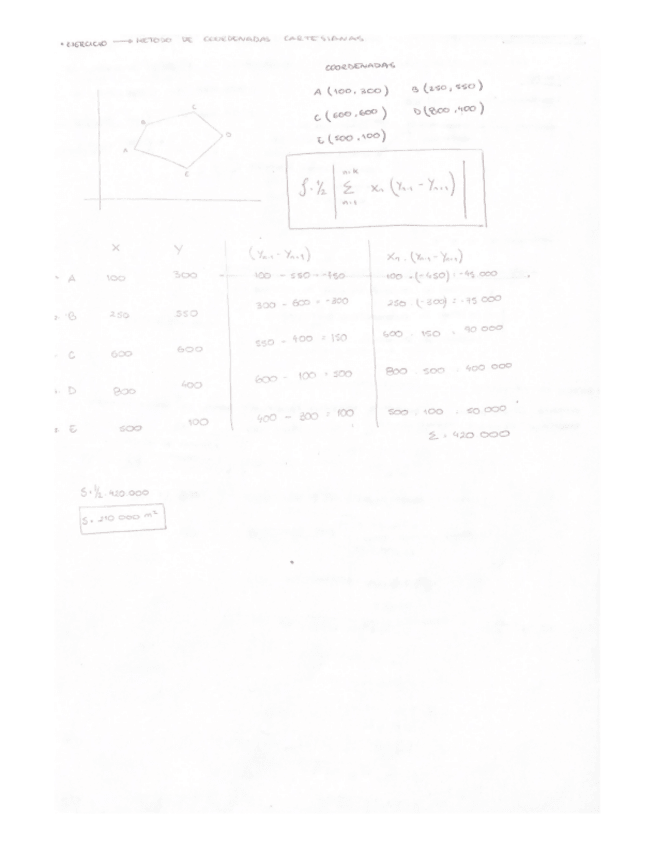 • EJERCICIO → METODO DE COORDENADAS CARTESIANAS
COORDENADAS
A (100, 300) B (250, 550)
C (600, 600) D (800, 400)
E (500, 100)
C
B
D
A
E
S = 1/2 | Σ Xn (Yn-1 - Yn+1) |
n=1
X Y (Yn-1 - Yn+1) Xn · (Yn-1 - Yn+1)
A 100 300 100 - 550 = -450 100 · (-450) = -45 000
B 250 550 300 - 600 = -300 250 · (-300) = -75 000
C 600 600 550 - 400 = 150 600 · 150 = 90 000
D 800 400 600 - 100 = 500 800 · 500 = 400 000
E 500 100 400 - 300 = 100 500 · 100 = 50 000
Σ = 420 000
S = 1/2 · 420.000
S = 210 000 m²